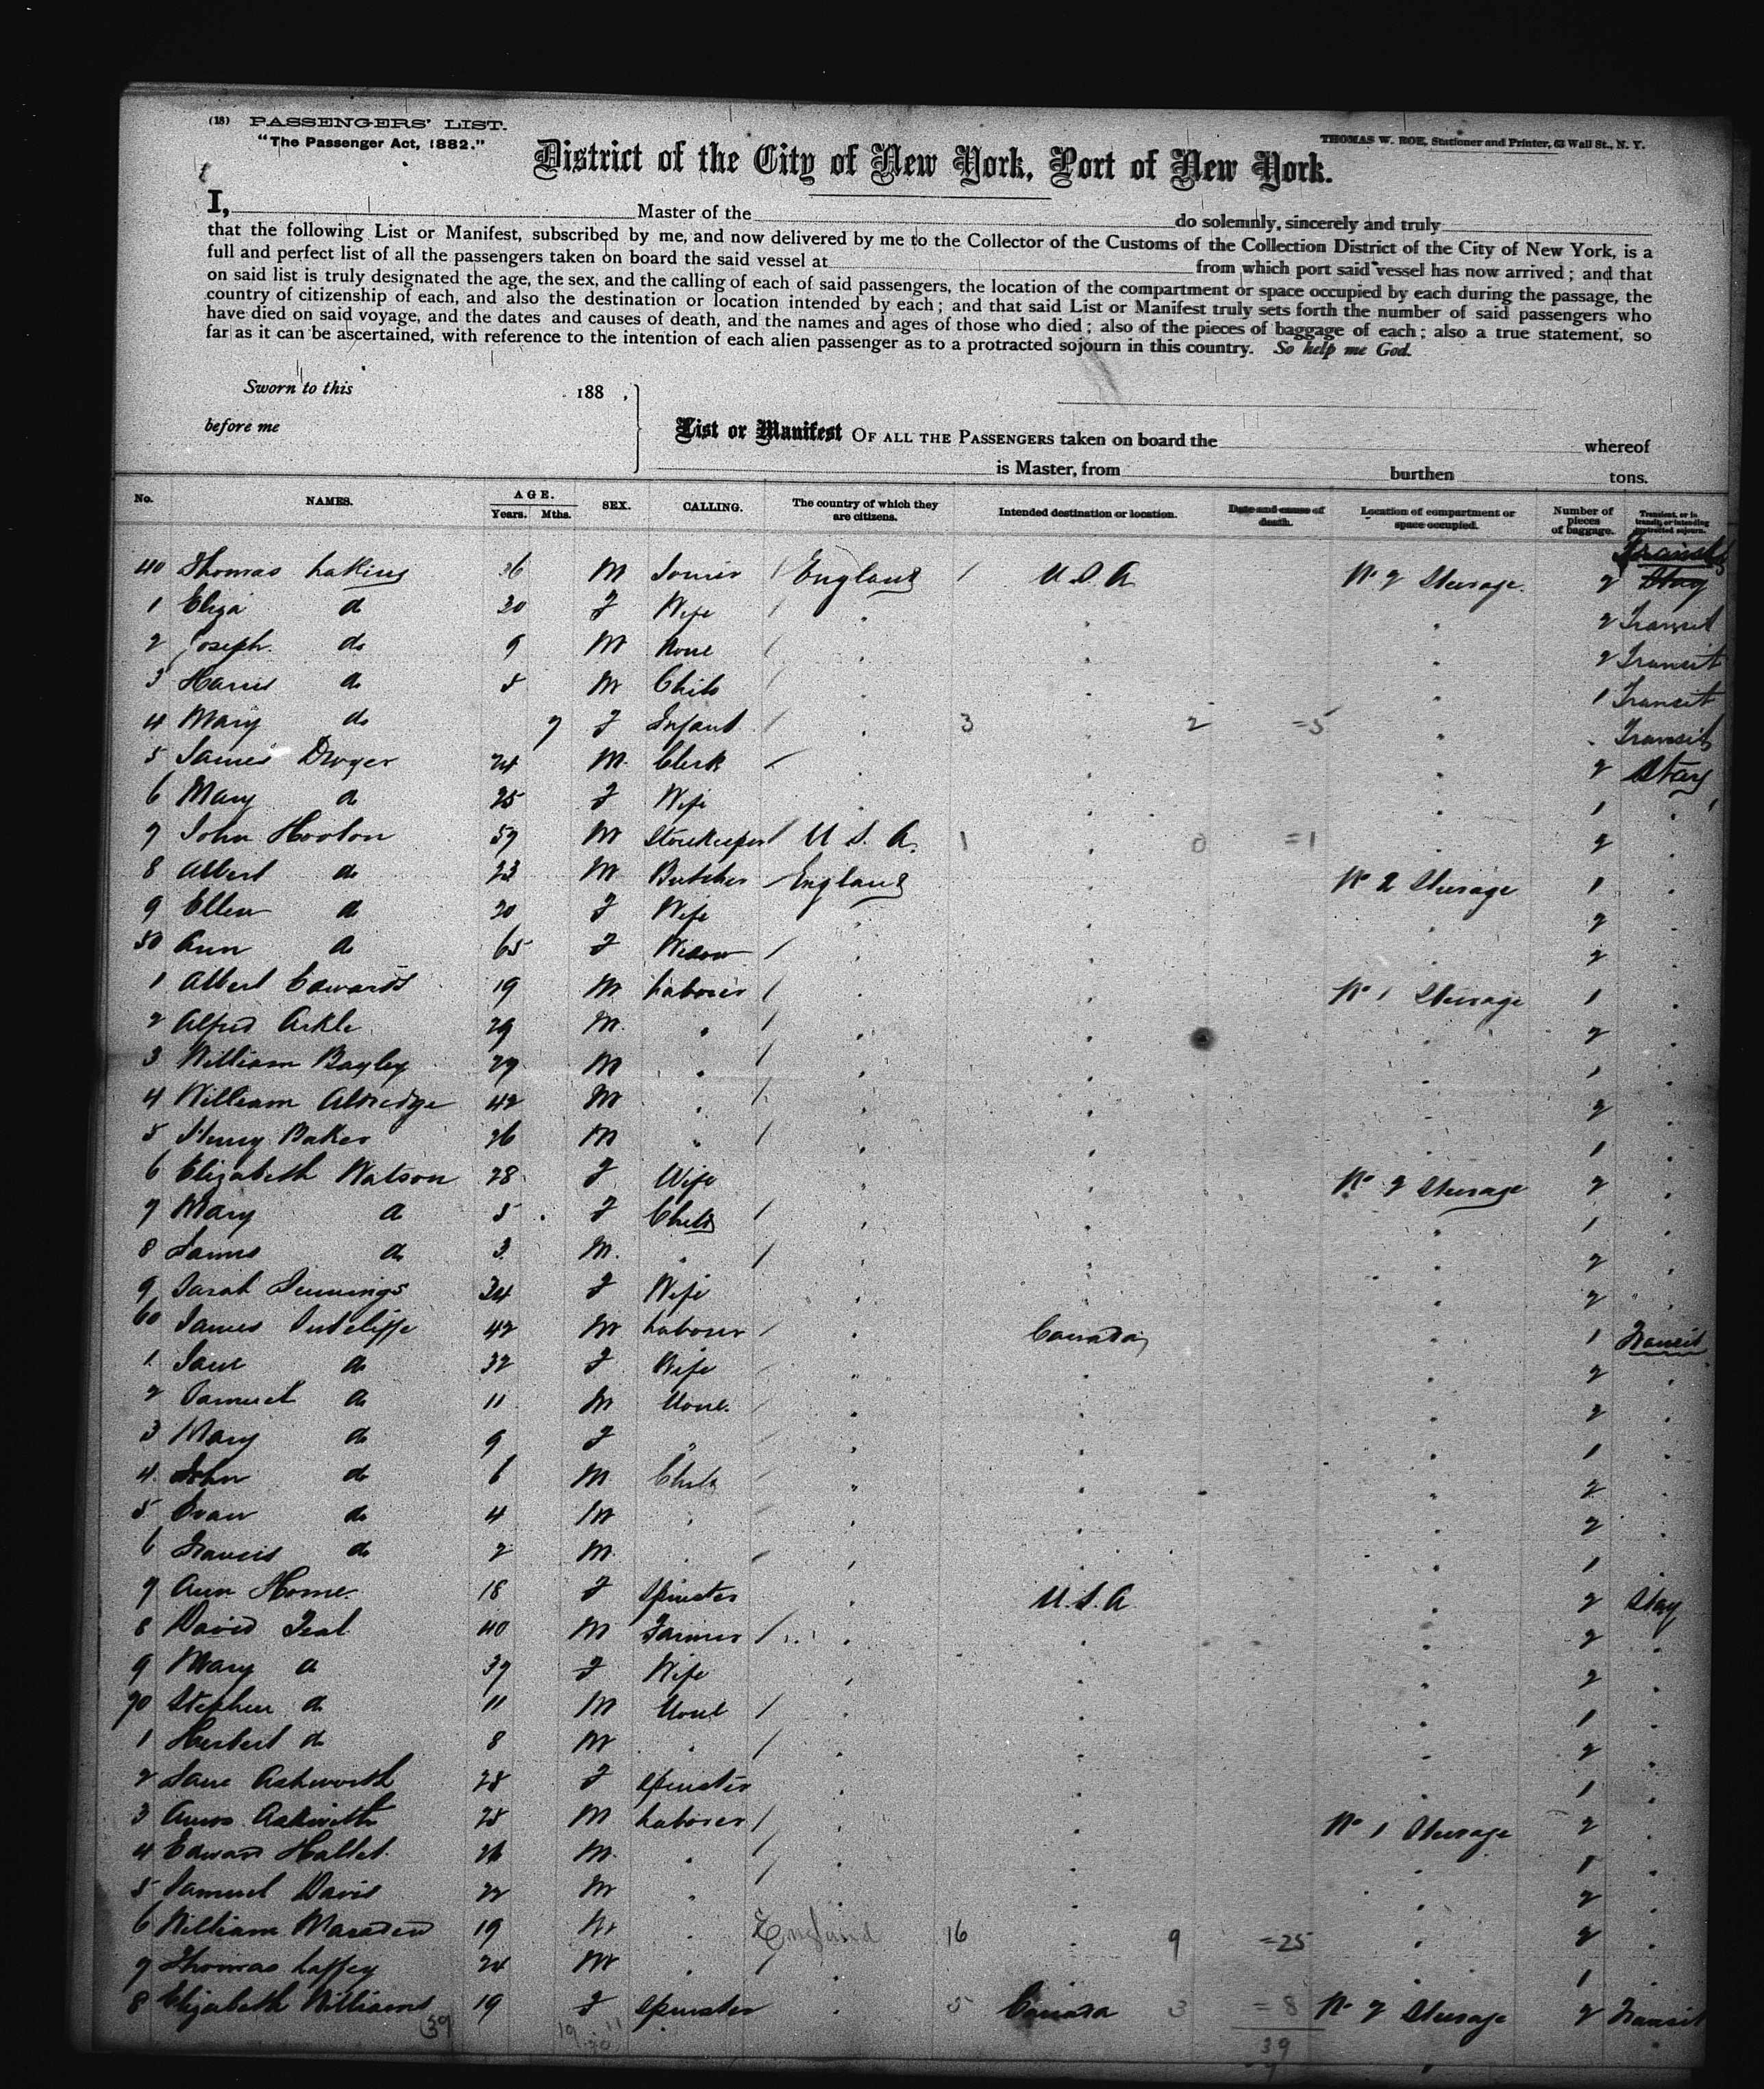 (18) PASSENGERS' LIST.
"The Passenger Act, 1882."
THOMAS W. ROE, Stationer and Printer, 63 Wall St., N. Y.
District of the City of New York, Port of New York.
I, Master of the do solemnly, sincerely and truly
that the following List or Manifest, subscribed by me, and now delivered by me to the Collector of the Customs of the Collection District of the City of New York, is a
full and perfect list of all the passengers taken on board the said vessel at from which port said vessel has now arrived; and that
on said list is truly designated the age, the sex, and the calling of each of said passengers, the location of the compartment or space occupied by each during the passage, the
country of citizenship of each, and also the destination or location intended by each; and that said List or Manifest truly sets forth the number of said passengers who
have died on said voyage, and the dates and causes of death, and the names and ages of those who died; also of the pieces of baggage of each; also a true statement, so
far as it can be ascertained, with reference to the intention of each alien passenger as to a protracted sojourn in this country. So help me God.
Sworn to this 188 ,
before me
List or Manifest OF ALL THE PASSENGERS taken on board the whereof
is Master, from burthen tons.
No. NAMES. AGE. Years. Mths. SEX. CALLING. The country of which they are citizens. Intended destination or location. Date and cause of death. Location of compartment or space occupied. Number of pieces of baggage. Transient, or in transit, or intending protracted sojourn.
Transit
40 Thomas Lakins 36 M England U.S.A No 2 Steerage 2 Stay
1 Eliza do 30 F Wife 2 Transit
2 Joseph do 9 M None 2 Transit
3 Harris do 5 M Child 1 Transit
4 Mary do 7 F Infant 3 2 =5 Transit
5 James Dwyer 24 M Clerk 2 Stay
6 Mary do 25 F Wife 1
7 John Hooton 57 M Storekeeper U.S.A. 1 0 =1 2
8 Albert do 23 M Butcher England No 2 Steerage 1
9 Ellen do 20 F Wife 2
50 Ann do 65 F Widow 2
1 Albert Edwards 19 M Laborer No 1 Steerage 1
2 Alfred Arkle 29 M 2
3 William Bagley 29 M 1
4 William Aldredge 42 M 2
5 Henry Baker 26 M 1
6 Elizabeth Watson 28 F Wife No 2 Steerage 2
7 Mary do 5 F Child 1
8 James do 3 M 2
9 Sarah Jennings 34 F Wife 2
60 James Sutcliffe 42 M Laborer Canada 1 Transit
1 Jane do 32 F Wife 2
2 Samuel do 11 M None 2
3 Mary do 9 F 1
4 John do 6 M Child 2
5 Evan do 4 M 2
6 Francis do 2 M 1
7 Ann Horne 18 F Spinster U.S.A 2 Stay
8 David Teal 40 M Farmer 2
9 Mary do 37 F Wife 2
70 Stephen do 11 M None 1
1 Herbert do 8 M 2
2 Jane Ashworth 28 F Spinster 1
3 Amos Askwith 28 M Laborer No 1 Steerage 2
4 Edward Hallet 26 M 1
5 Samuel Davis 22 M 2
6 William Marsden 19 M England 16 9 =25 2
7 Thomas Laffey 24 M 1
8 Elizabeth Williams 19 F Spinster 5 Canada 3 =8 No 2 Steerage 2 Transit
39 19 11 30 39